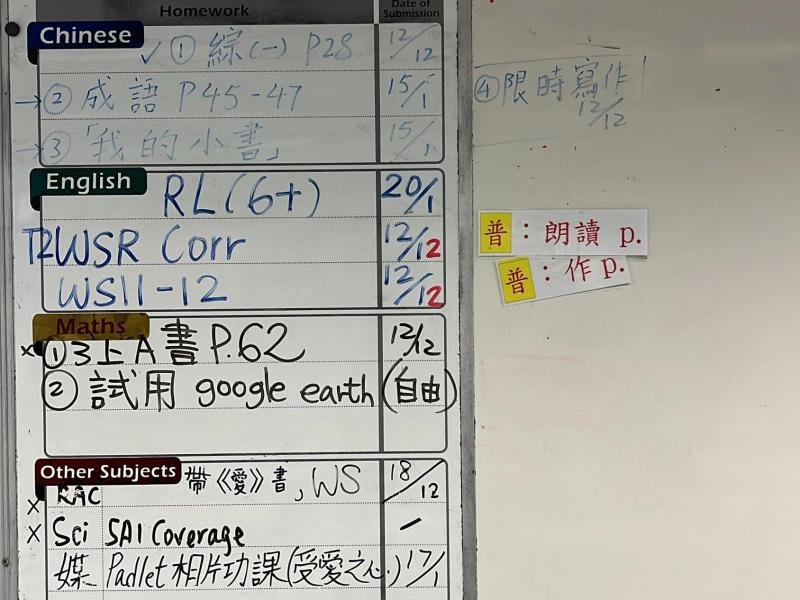 Homework Date of Submission
Chinese
✓ ① 綜(一) P28 12/12
→ ② 成語 P45-47 15/1
→ ③ 「我的小書」 15/1
English
RL(6+) 20/1
T2 WSR Corr 12/12
WS11-12 12/12
Maths
× ① 3上A 書 P.62 12/12
② 試用 google earth (自由)
Other Subjects
× RAC 帶《愛》書, WS 18/12
× Sci SA1 Coverage –
媒 Padlet 相片功課(受愛之心) 17/1
④ 限時寫作 12/12
普：朗讀 p.
普：作 p.